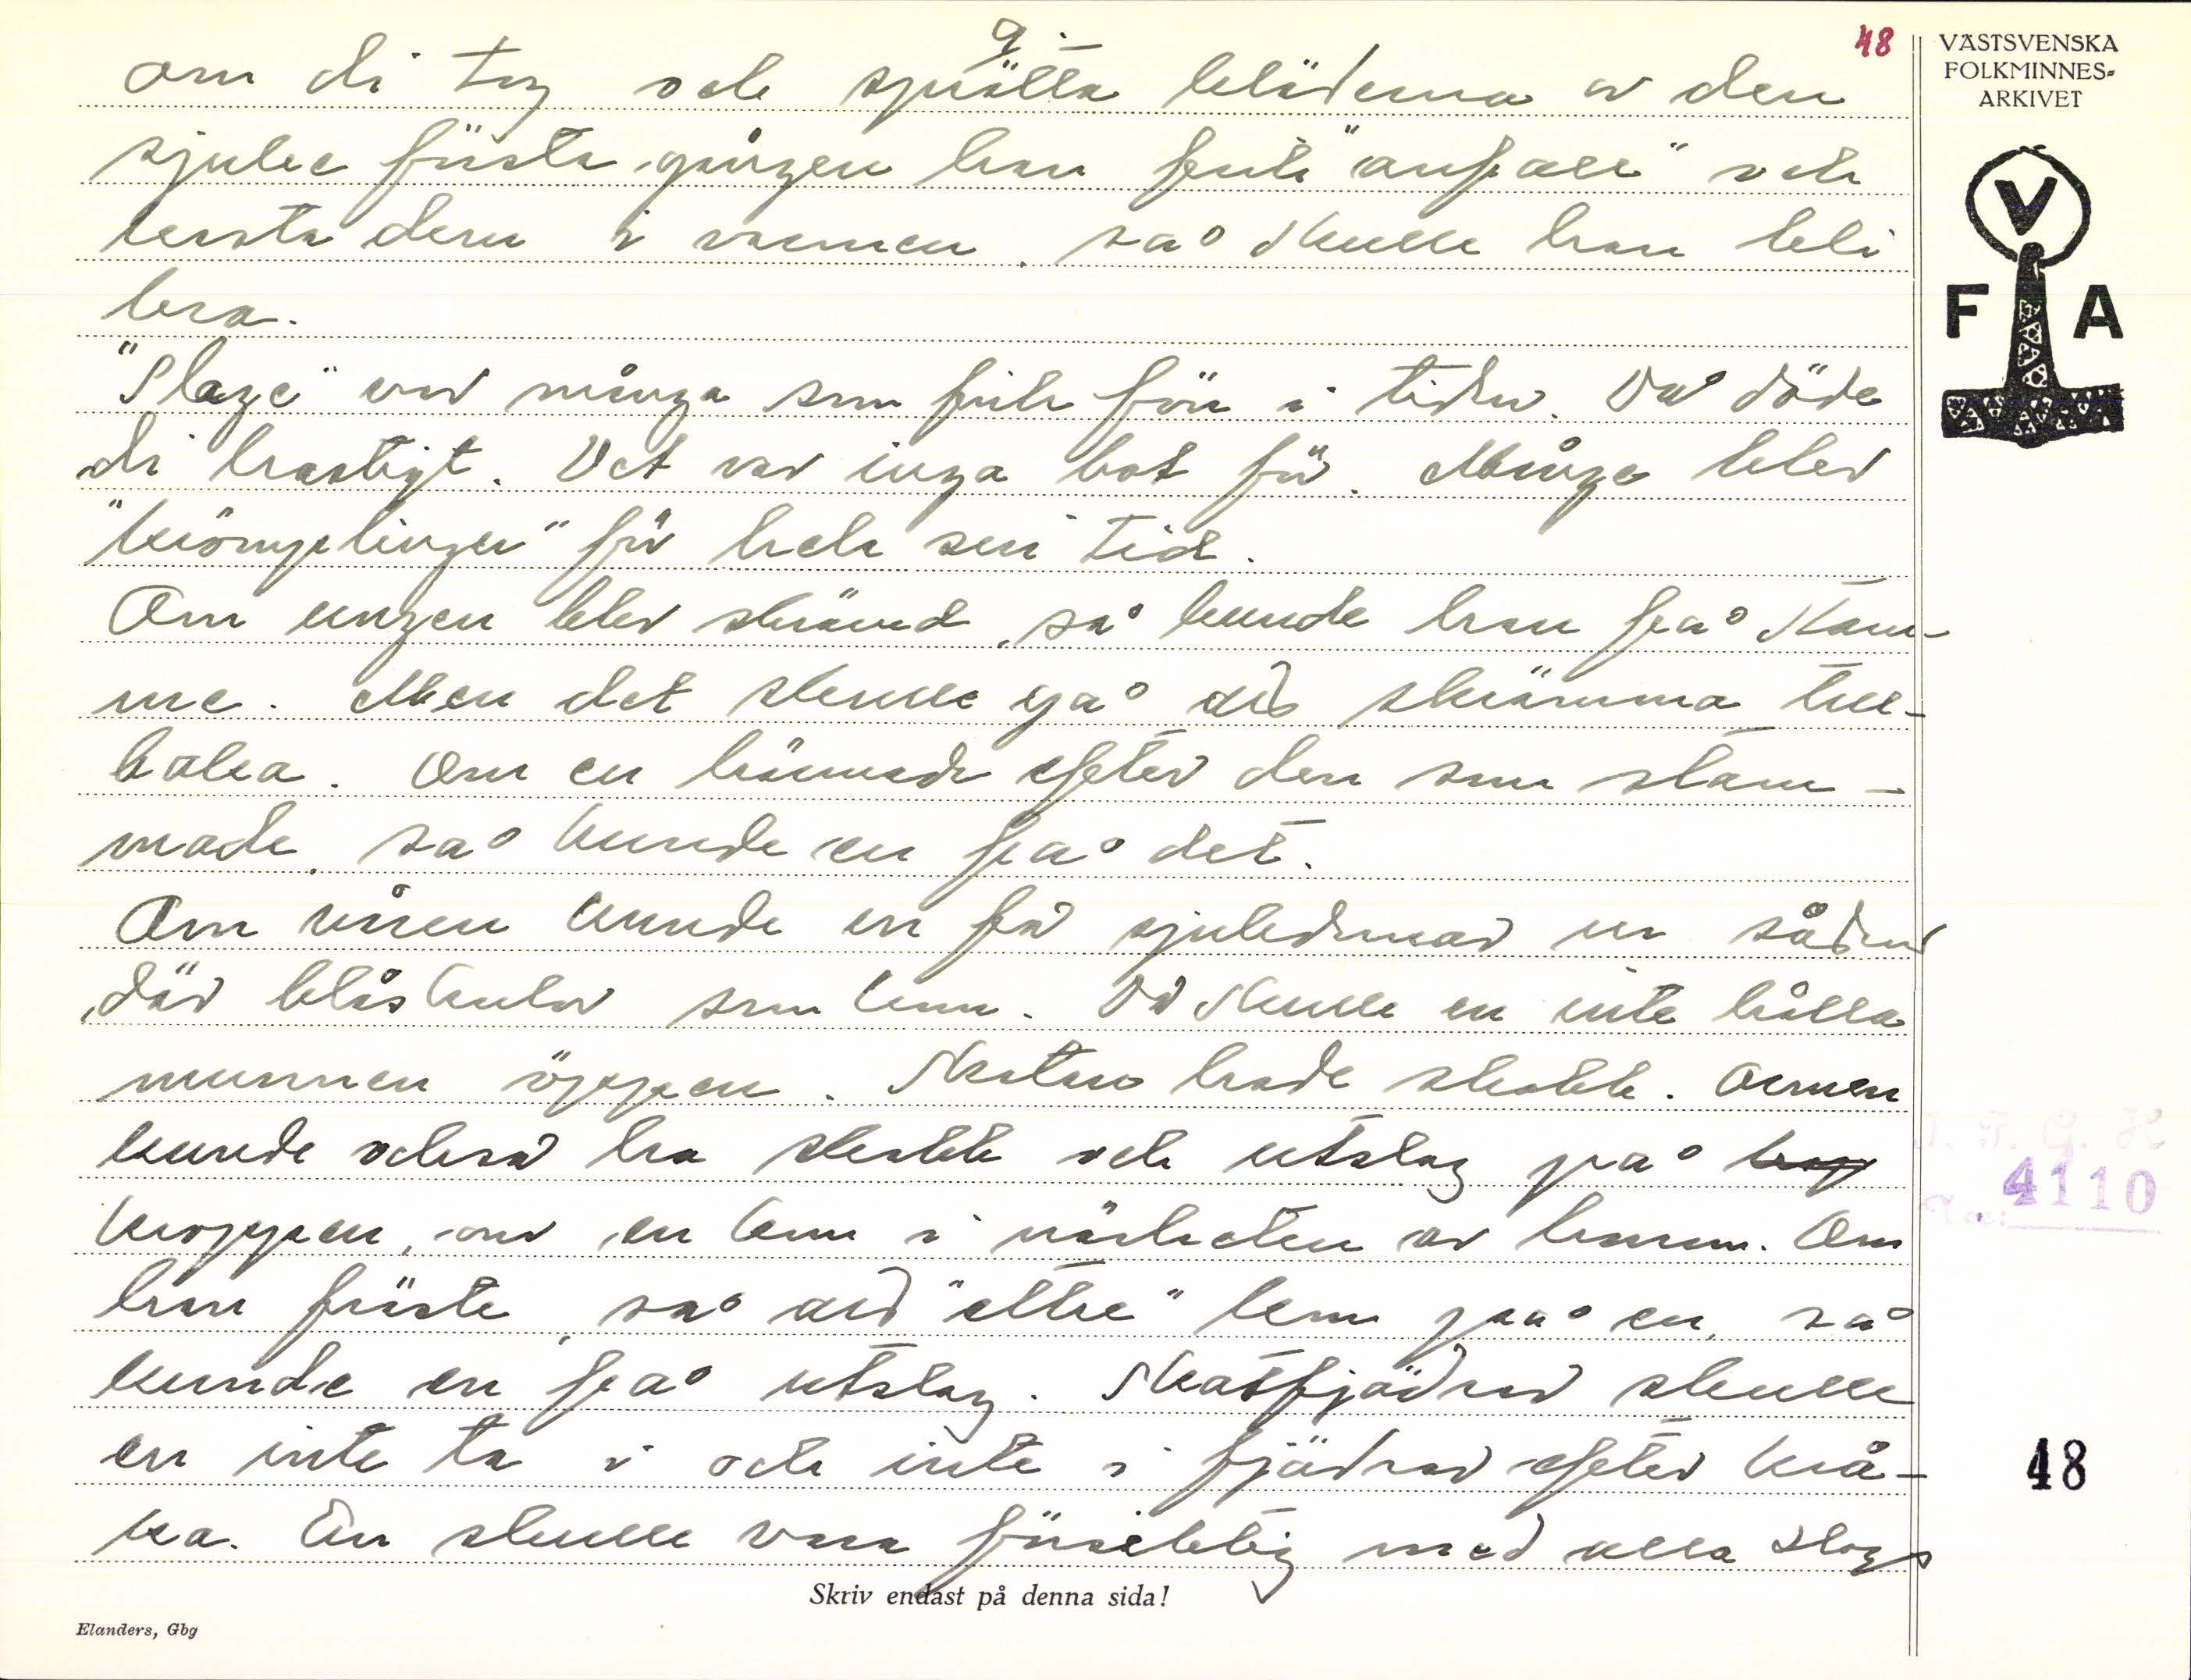 9.
48
VÄSTSVENSKA
FOLKMINNES-
ARKIVET
V
F A
om di tog och sprätta kläderna av den
sjuke första gången han fick "anfall" och
kasta dem i varmen, så skulle han bli
bra.
"Slage" var många som fick förr i tiden. Då döde
di hastigt. Det var inga bot för. Många blev
"krömplinger" för hela sin tid.
Om ungen blev skrämd, så kunde han få stam-
me. Men det skulle gå att skrämma till-
baka. Om en härmade efter den som stam-
made, så kunde en få det.
Om våren kunde en få sjukdomar ur sådan
där blåskulor som kom. Då skulle en inte hålla
munnen öppen. Skatan hade skabb. Ormen
kunde också ha skabb och utslag på
kroppen, om en kom i närheten av honom. Om
han fräste, så att "ettre" kom på en, så
kunde en få utslag. Skatfjädrar skulle
en inte ta i och inte i fjädrar efter krå-
ka. En skulle vara försiktig med alla slags
I. F. G. H.
4110
48
Skriv endast på denna sida!
Elanders, Gbg